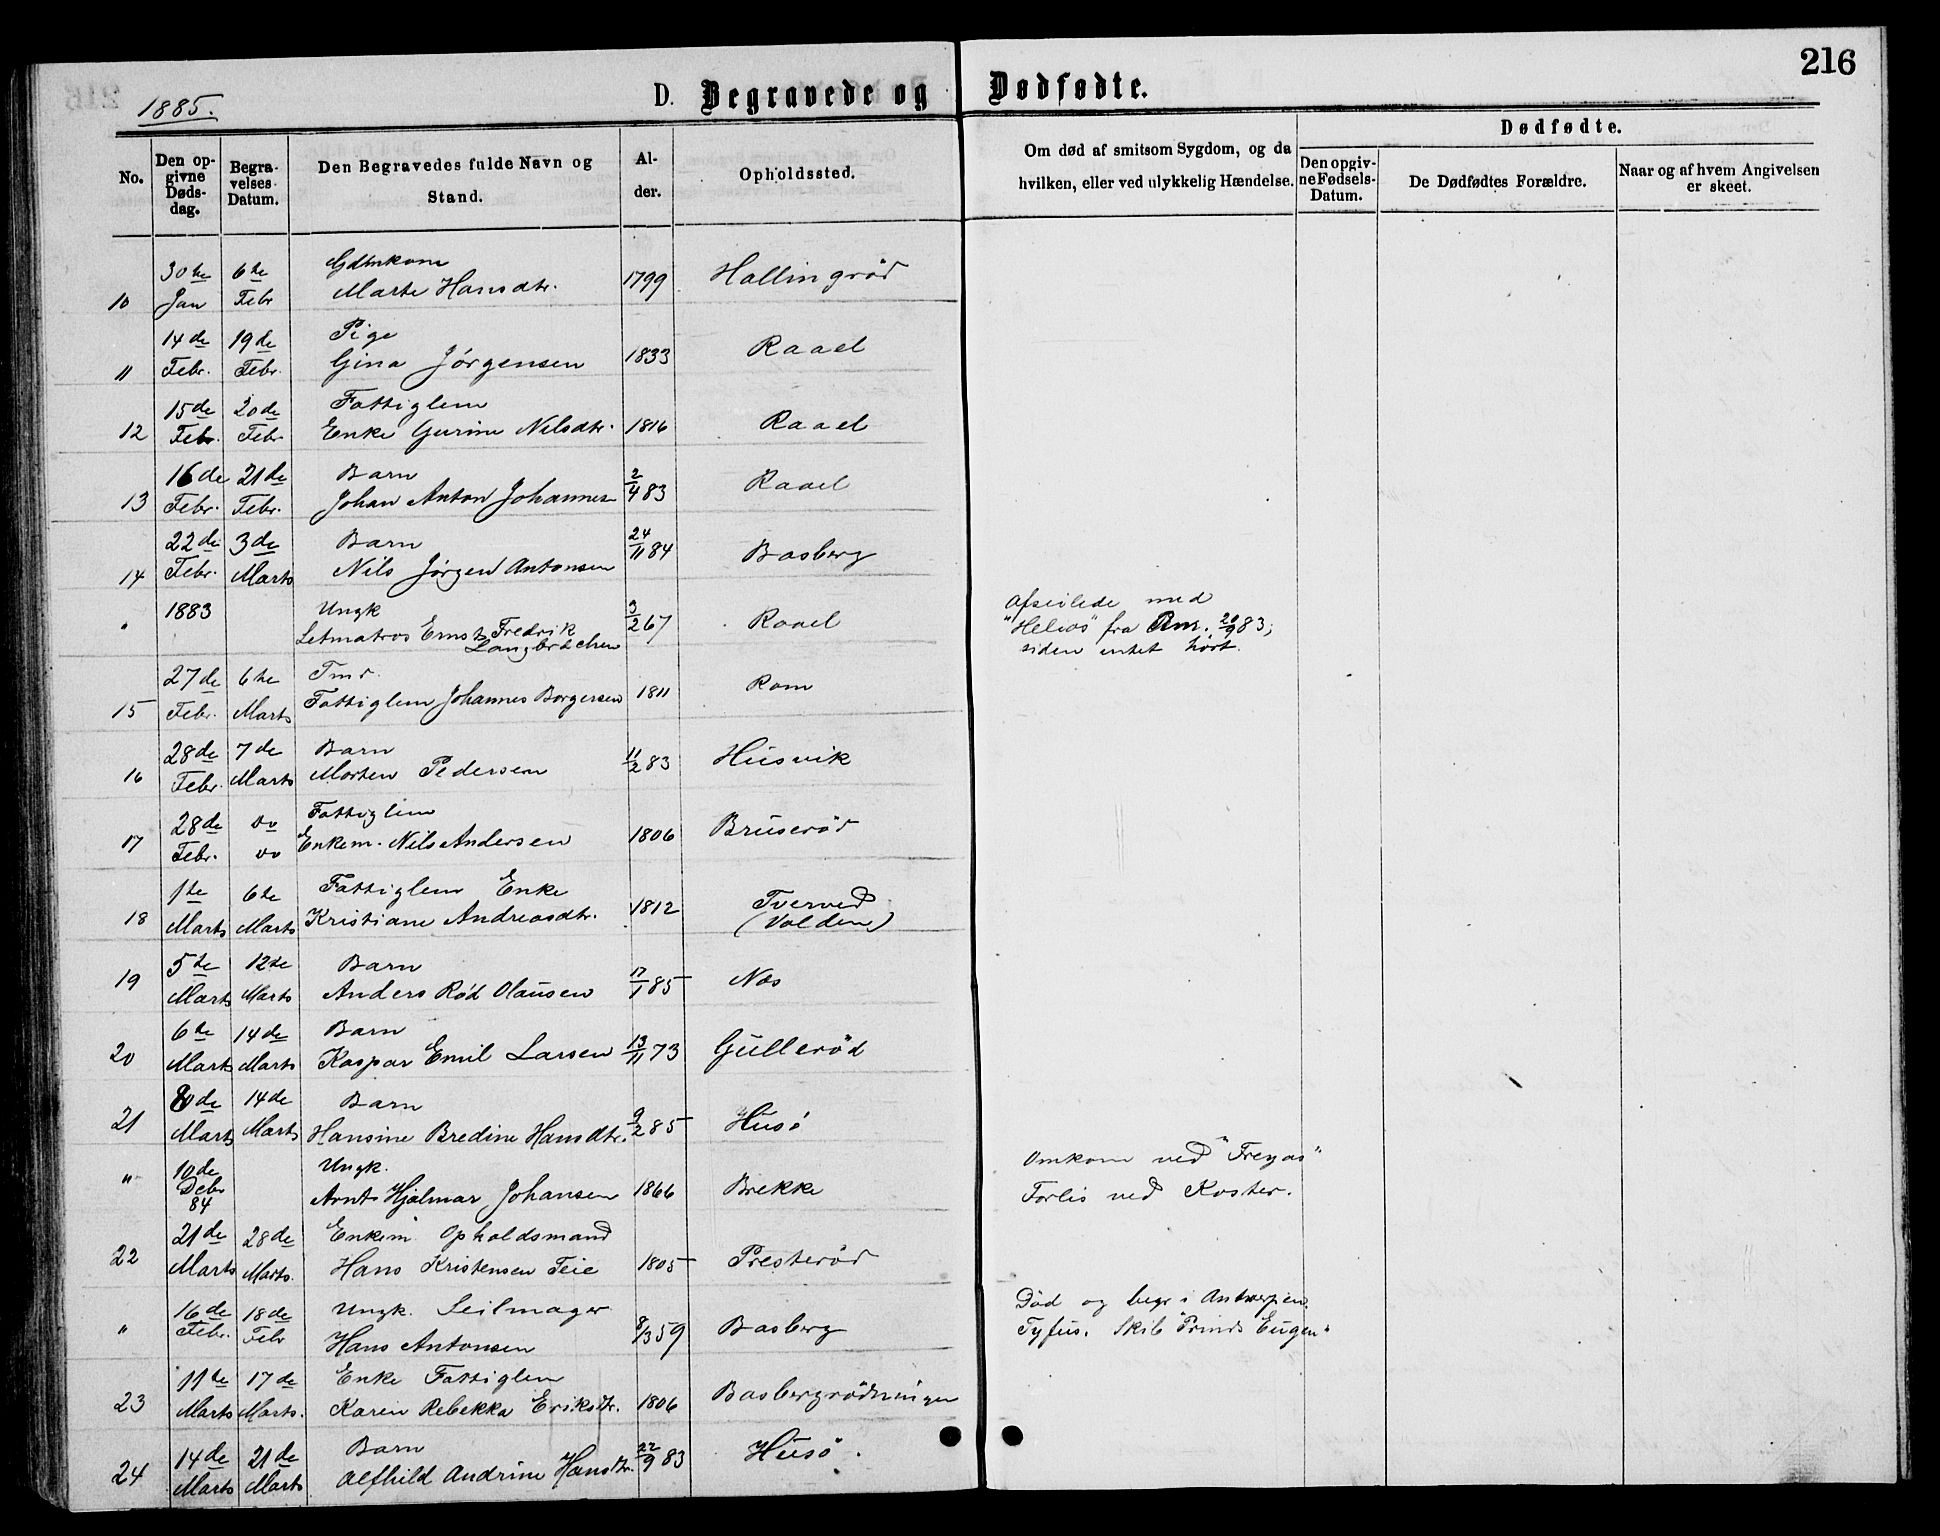 216
1885.
D. Begravede og Dødfødte.
No.
Den op-
givne
Døds-
dag.
Begra-
velses-
Datum.
Den Begravedes fulde Navn og
Stand.
Al-
der.
Opholdssted.
Om død af smitsom Sygdom, og da
hvilken, eller ved ulykkelig Hændelse.
Dødfødte.
Den opgiv-
ne Fødsels-
Datum.
De Dødfødtes Forældre.
Naar og af hvem Angivelsen
er skeet.
30te 6te
10 Jan Febr Marte Hansdtr. 1799 Hallingrød
14de 19de Pige
11 Febr. Febr. Gina Jørgensen 1833 Raael
15de 20de Fattiglem
12 Febr. Febr Enke Gurine Nilsdtr. 1816 Raael
16de 21de Barn
13 Febr. Febr. Johan Anton Johannes 2/4 83 Raael
22de 3de Barn
14 Febr. Marts Nils Jørgen Antonsen 24/11 84 Basberg
" 1883 Ungk 3/2 67 Raael Afseilede med
Letmatros Ernst Fredrik "Helios" fra 20/9 83;
siden intet hørt.
27de 6te Tmd.
15 Febr. Marts Fattiglem Johannes Borgersen 1811 Rom
28de 7de Barn
16 Febr. Marts Morten Pedersen 11/2 83 Husvik
28de do Fattiglem
17 Febr. do Enkem. Nils Andersen 1806 Bruserød
1te 6te Fattiglem Enke
18 Marts Marts Kristiane Andreasdtr. 1812 Tverved
(Volden)
5te 12te Barn
19 Marts Marts Anders Rød Olausen 17/1 85 Nes
6te 14de Barn
20 Marts Marts Kaspar Emil Larsen 13/11 73 Gullerød
8de 14de Barn
21 Marts Marts Hansine Bredine Hansdtr. 9/2 85 Husø
" 10de Ungk. Omkom ved "Freyas"
Debr 84 Arnt Hjalmar Johansen 1866 Brekke Forlis ved Koster.
21de 28de Enkem Opholdsmand
22 Marts Marts. Hans Kristensen Teie 1805 Presterød
16de 18de Ungk. Seilmager Død og begr i Antwerpen.
" Febr. Febr Hans Antonsen 8/3 59 Basberg Tyfus. Skib "Prinds Eugen"
11te 17de Enke Fattiglem
23 Marts Marts. Karen Rebekka Eriksdtr. 1806 Basbergrødningen
14de 21de Barn
24 Marts Marts Alfhild Andrine Hansdtr. 22/9 83 Husø.